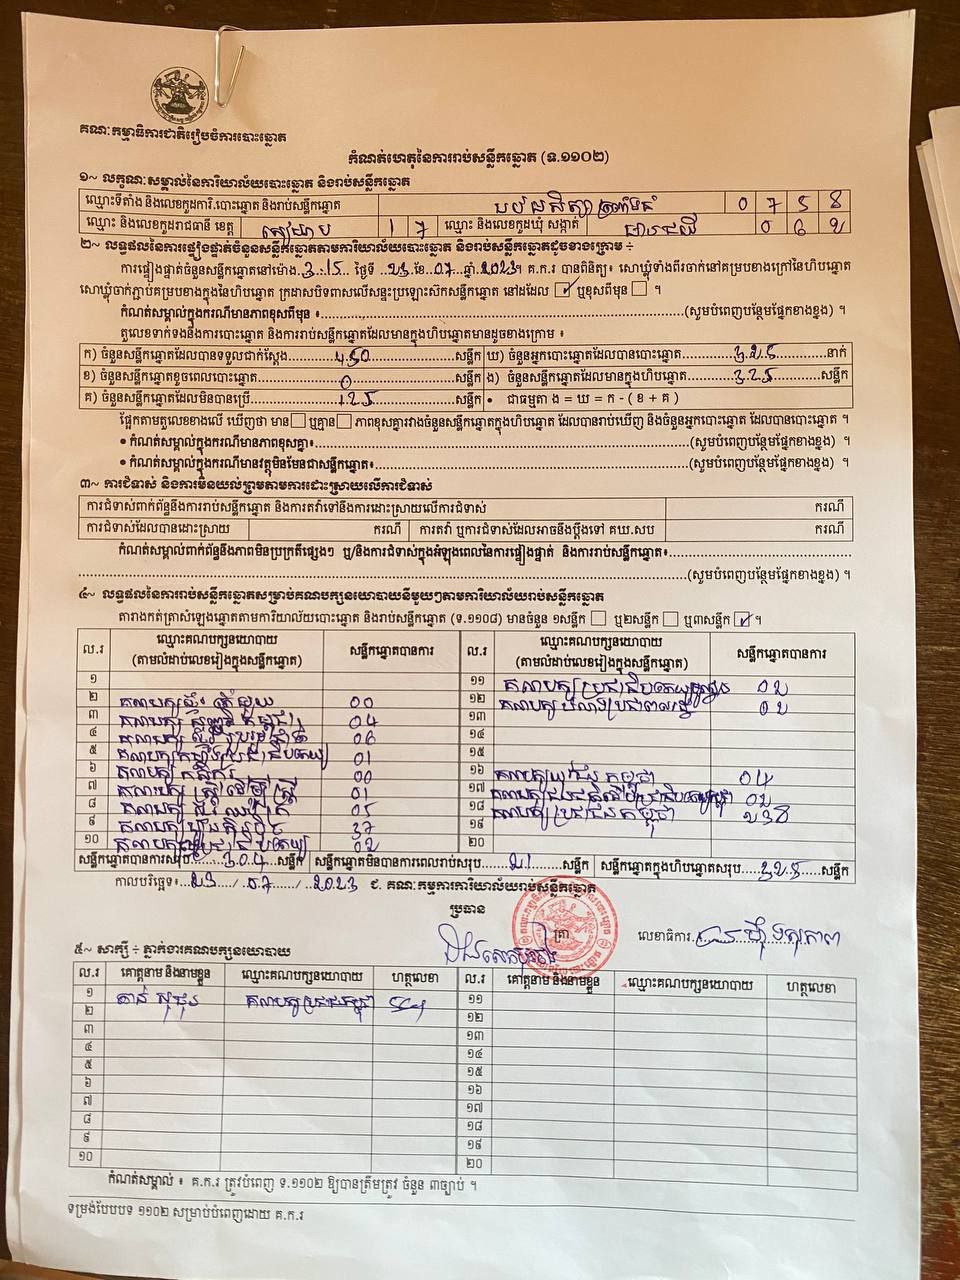 គណៈកម្មាធិការជាតិរៀបចំការបោះឆ្នោត
កំណត់ហេតុនៃការរាប់សន្លឹកឆ្នោត (ទ.១១០២)
១~ លក្ខណៈសម្គាល់នៃការិយាល័យបោះឆ្នោត និងរាប់សន្លឹកឆ្នោត
ឈ្មោះទីតាំង និងលេខកូដការិ.បោះឆ្នោត និងរាប់សន្លឹកឆ្នោត 0 7 5 8
ឈ្មោះ និងលេខកូដរាជធានី ខេត្ត សៀមរាប 1 7 ឈ្មោះ និងលេខកូដឃុំ សង្កាត់
២~ លទ្ធផលនៃការផ្ទៀងផ្ទាត់ចំនួនសន្លឹកឆ្នោតតាមការិយាល័យបោះឆ្នោត និងរាប់សន្លឹកឆ្នោតដូចខាងក្រោម ÷
ការផ្ទៀងផ្ទាត់ចំនួនសន្លឹកឆ្នោតនៅម៉ោង 3:15 ថ្ងៃទី ២៣ ខែ ០៧ ឆ្នាំ ២០២៣។ គ.ក.រ បានពិនិត្យ៖ សោឃ្លុំទាំងពីរចាក់នៅគម្របខាងក្រៅនៃហិបឆ្នោត
សោឃ្លុំចាក់ភ្ជាប់គម្របខាងក្នុងនៃហិបឆ្នោត ក្រដាសបិទពាសលើសន្ទះប្រឡោះស៊កសន្លឹកឆ្នោត នៅដដែល ☑ ឬខុសពីមុន ☐ ។
កំណត់សម្គាល់ក្នុងករណីមានភាពខុសពីមុន ៖ (សូមបំពេញបន្ថែមផ្នែកខាងខ្នង) ។
តួលេខទាក់ទងនឹងការបោះឆ្នោត និងការរាប់សន្លឹកឆ្នោតដែលមានក្នុងហិបឆ្នោតមានដូចខាងក្រោម ៖
ក) ចំនួនសន្លឹកឆ្នោតដែលបានទទួលជាក់ស្តែង 450 សន្លឹក ឃ) ចំនួនអ្នកបោះឆ្នោតដែលបានបោះឆ្នោត ៣២៥ នាក់
ខ) ចំនួនសន្លឹកឆ្នោតខូចពេលបោះឆ្នោត 0 សន្លឹក ង) ចំនួនសន្លឹកឆ្នោតដែលមានក្នុងហិបឆ្នោត ៣២៥ សន្លឹក
គ) ចំនួនសន្លឹកឆ្នោតដែលមិនបានប្រើ 125 សន្លឹក • ជាធម្មតា ង = ឃ = ក - ( ខ + គ )
ផ្អែកតាមតួលេខខាងលើ ឃើញថា មាន ☐ ឬគ្មាន ☐ ភាពខុសគ្នារវាងចំនួនសន្លឹកឆ្នោតក្នុងហិបឆ្នោត ដែលបានរាប់ឃើញ និងចំនួនអ្នកបោះឆ្នោត ដែលបានបោះឆ្នោត ។
• កំណត់សម្គាល់ក្នុងករណីមានភាពខុសគ្នា៖ (សូមបំពេញបន្ថែមផ្នែកខាងខ្នង) ។
• កំណត់សម្គាល់ក្នុងករណីមានវត្ថុមិនមែនជាសន្លឹកឆ្នោត៖ (សូមបំពេញបន្ថែមផ្នែកខាងខ្នង) ។
៣~ ការជំទាស់ និងការមិនយល់ព្រមតាមការដោះស្រាយលើការជំទាស់
ការជំទាស់ពាក់ព័ន្ធនឹងការរាប់សន្លឹកឆ្នោត និងការតវ៉ាទៅនឹងការដោះស្រាយលើការជំទាស់ ករណី
ការជំទាស់ដែលបានដោះស្រាយ ករណី ការតវ៉ា ឬការជំទាស់ដែលអាចនឹងប្តឹងទៅ គឃ.សប ករណី
កំណត់សម្គាល់ពាក់ព័ន្ធនឹងភាពមិនប្រក្រតីផ្សេងៗ ឬ/និងការជំទាស់ក្នុងអំឡុងពេលនៃការផ្ទៀងផ្ទាត់ និងការរាប់សន្លឹកឆ្នោត៖
(សូមបំពេញបន្ថែមផ្នែកខាងខ្នង) ។
៤~ លទ្ធផលនៃការរាប់សន្លឹកឆ្នោតសម្រាប់គណបក្សនយោបាយនីមួយៗតាមការិយាល័យរាប់សន្លឹកឆ្នោត
តារាងកត់ត្រាសំឡេងឆ្នោតតាមការិយាល័យបោះឆ្នោត និងរាប់សន្លឹកឆ្នោត (ទ.១១០៨) មានចំនួន ១សន្លឹក ☐ ឬ២សន្លឹក ☐ ឬ៣សន្លឹក ☑ ។
ល.រ ឈ្មោះគណបក្សនយោបាយ (តាមលំដាប់លេខរៀងក្នុងសន្លឹកឆ្នោត) សន្លឹកឆ្នោតបានការ ល.រ ឈ្មោះគណបក្សនយោបាយ (តាមលំដាប់លេខរៀងក្នុងសន្លឹកឆ្នោត) សន្លឹកឆ្នោតបានការ
១ ១១ គណបក្ស 0២
២ គណបក្ស 00 ១២ គណបក្ស 0២
៣ គណបក្ស 04 ១៣
៤ គណបក្ស 06 ១៤
៥ គណបក្សកម្លាំងប្រជាធិបតេយ្យ 01 ១៥
៦ គណបក្ស កសិករ 00 ១៦ គណបក្សយុវជន កម្ពុជា 04
៧ គណបក្ស ស្រ្តីដើម្បីស្រ្តី 01 ១៧ គណបក្ស 0២
៨ គណបក្ស 05 ១៨ គណបក្ស ប្រជាជន កម្ពុជា ២៣8
៩ គណបក្ស 37 ១៩
១០ គណបក្ស 02 ២០
សន្លឹកឆ្នោតបានការសរុប ៣០៤ សន្លឹក សន្លឹកឆ្នោតមិនបានការពេលរាប់សរុប ២1 សន្លឹក សន្លឹកឆ្នោតក្នុងហិបឆ្នោតសរុប ៣២៥ សន្លឹក
កាលបរិច្ឆេទ៖ ២៣ / ០៧ / ២០២៣ ជ. គណៈកម្មការការិយាល័យរាប់សន្លឹកឆ្នោត
ប្រធាន
ត្រា
លេខាធិការ
៥~ សាក្សី ÷ ភ្នាក់ងារគណបក្សនយោបាយ
ល.រ គោត្តនាម និងនាមខ្លួន ឈ្មោះគណបក្សនយោបាយ ហត្ថលេខា ល.រ គោត្តនាម និងនាមខ្លួន ឈ្មោះគណបក្សនយោបាយ ហត្ថលេខា
១ គណបក្សប្រជាជនកម្ពុជា ១១
២ ១២
៣ ១៣
៤ ១៤
៥ ១៥
៦ ១៦
៧ ១៧
៨ ១៨
៩ ១៩
១០ ២០
កំណត់សម្គាល់ ៖ គ.ក.រ ត្រូវបំពេញ ទ.១១០២ ឱ្យបានត្រឹមត្រូវ ចំនួន ៣ច្បាប់ ។
ទម្រង់បែបបទ ១១០២ សម្រាប់បំពេញដោយ គ.ក.រ